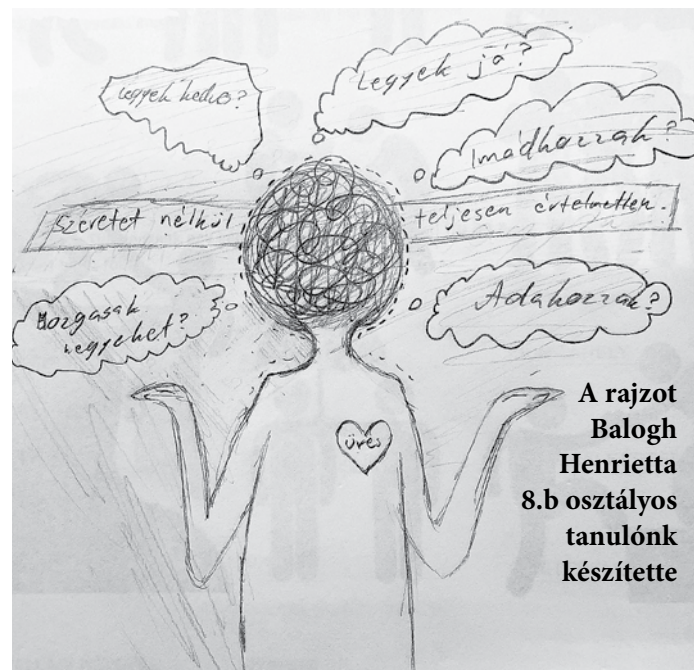 Legyek jó?
Legyek kedves?
Imádkozzak?
Szeretet nélkül teljesen értelmetlen.
Mozgassak
hegyeket?
Adakozzak?
üres
A rajzot
Balogh
Henrietta
8.b osztályos
tanulónk
készítette